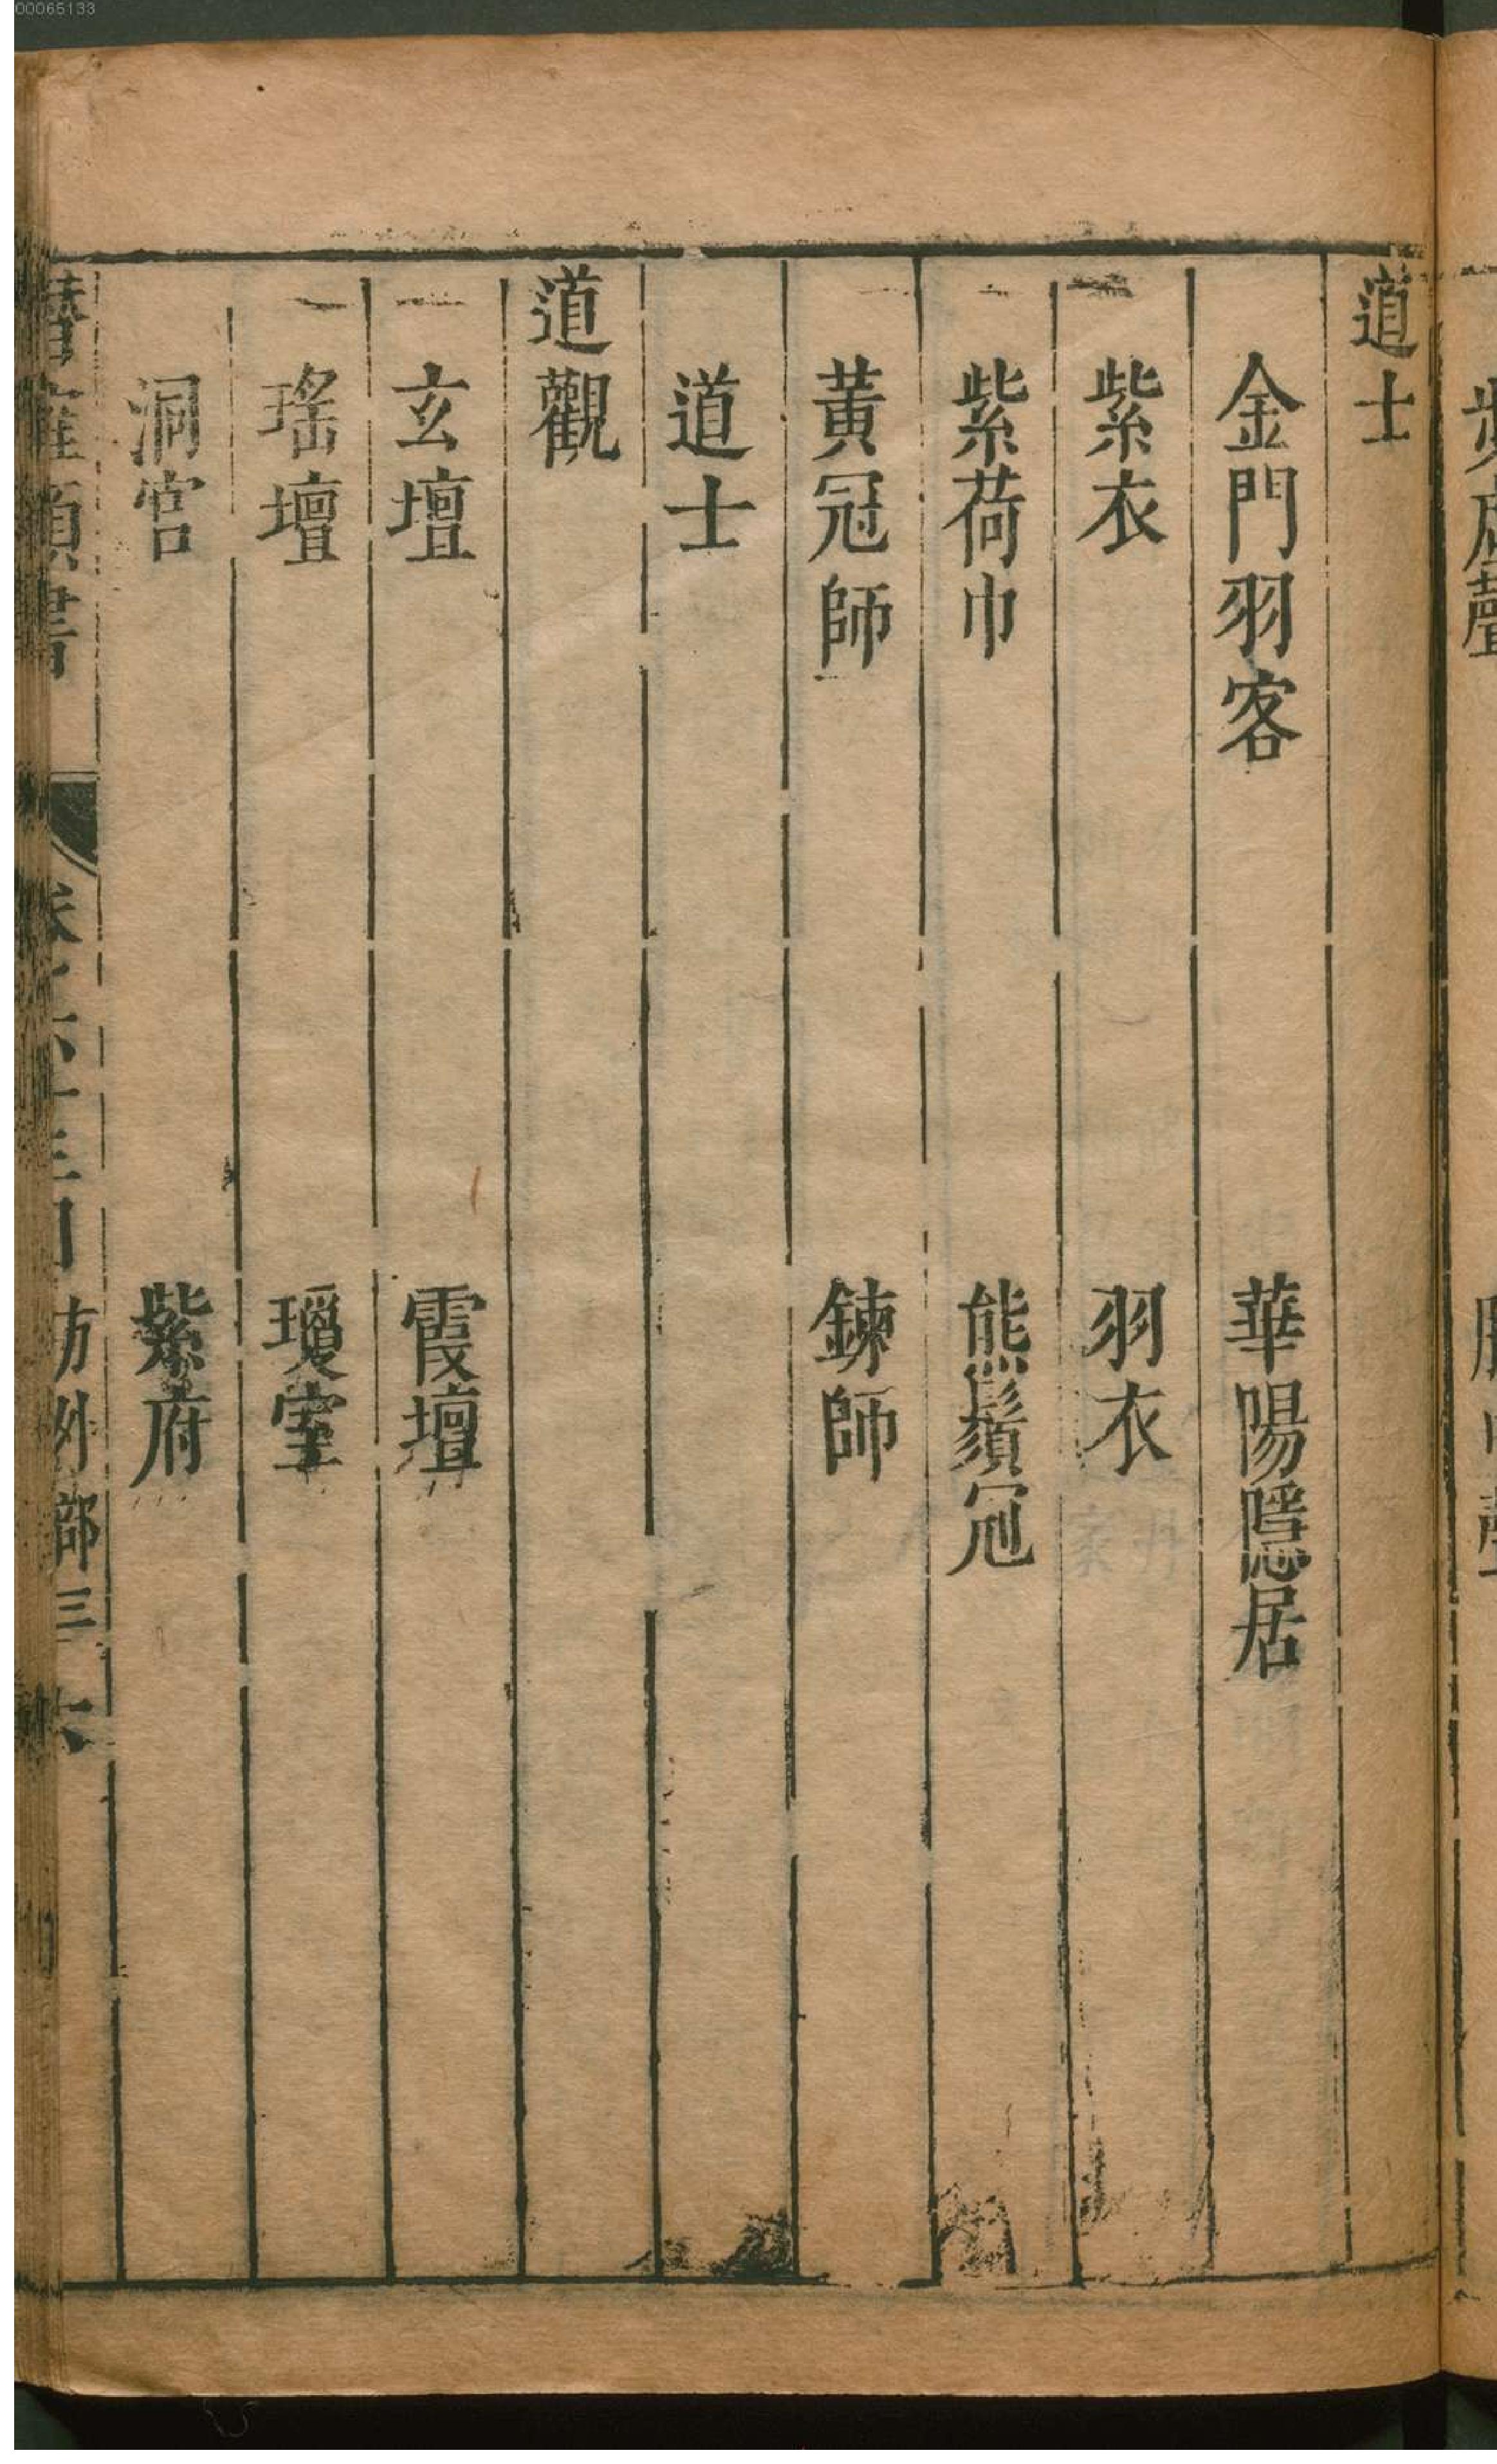 00065133
道士
金門羽客 華陽隱居
紫衣 羽衣
紫荷巾 熊鬚冠
黃冠師 鍊師
道士
道觀
玄壇 霞壇
瑤壇 瓊室
洞宮 紫府
卷之六十三四 方外部三 六